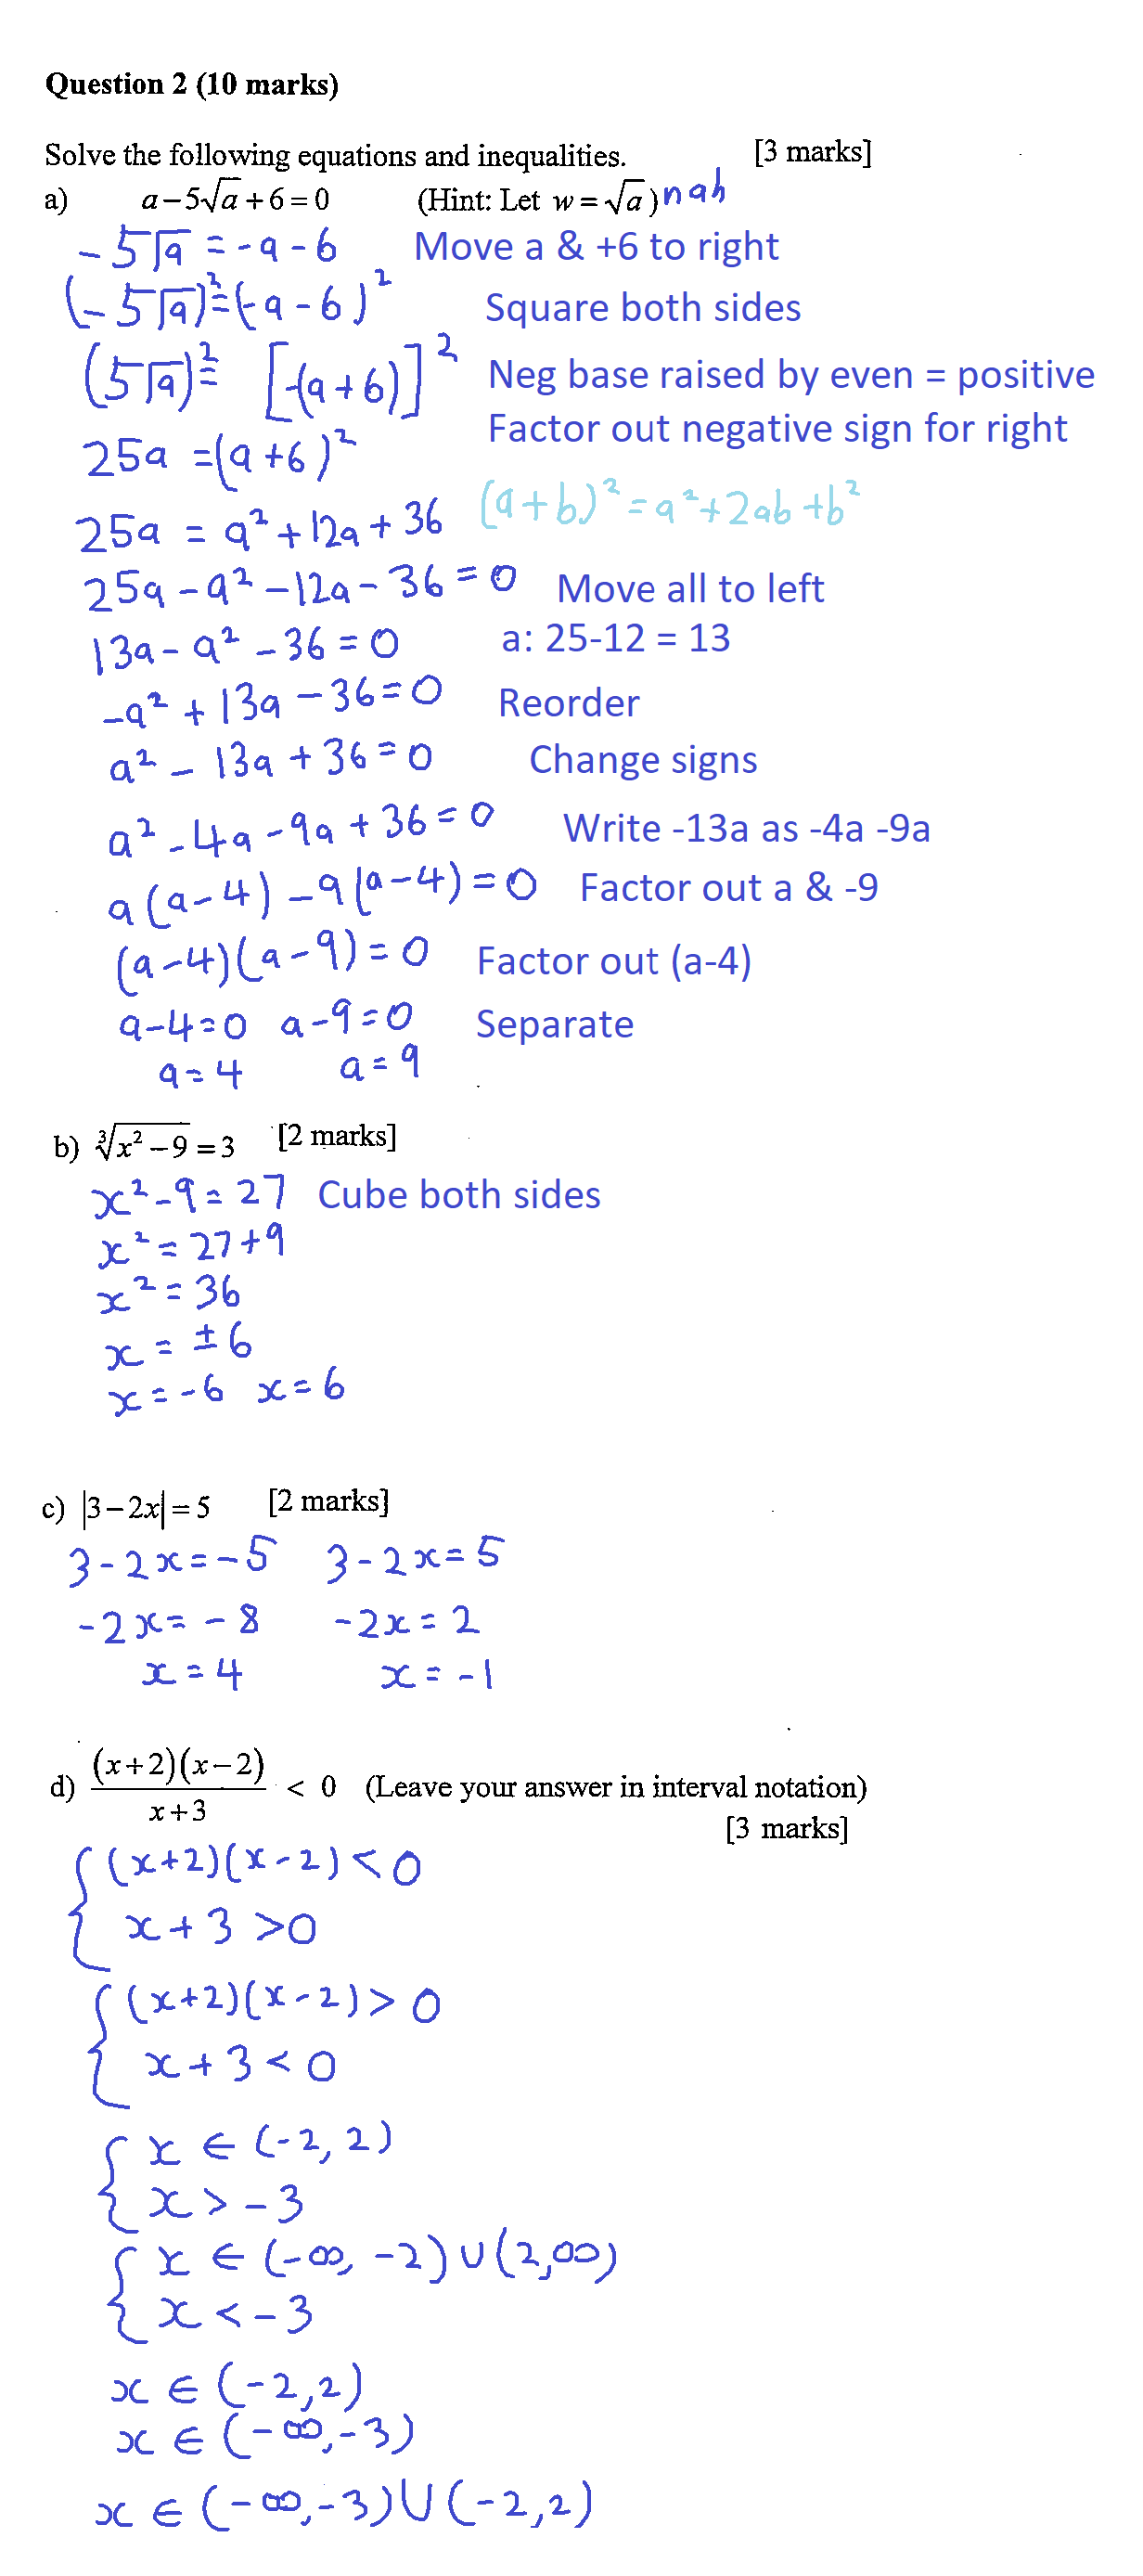 Question 2 (10 marks)
Solve the following equations and inequalities. [3 marks]
a) a-5√a+6=0 (Hint: Let w=√a) nah
-5√a = -a-6 Move a & +6 to right
(-5√a)²=(-a-6)² Square both sides
(5√a)²= [-(a+6)]² Neg base raised by even = positive
Factor out negative sign for right
25a =(a+6)²
25a = a²+12a+36 (a+b)²=a²+2ab+b²
25a-a²-12a-36=0 Move all to left
13a-a²-36=0 a: 25-12 = 13
-a²+13a-36=0 Reorder
a²-13a+36=0 Change signs
a²-4a-9a+36=0 Write -13a as -4a -9a
a(a-4)-9(a-4)=0 Factor out a & -9
(a-4)(a-9)=0 Factor out (a-4)
a-4=0 a-9=0 Separate
a=4 a=9
b) ∛(x²-9)=3 [2 marks]
x²-9=27 Cube both sides
x²=27+9
x²=36
x=±6
x=-6 x=6
c) |3-2x|=5 [2 marks]
3-2x=-5 3-2x=5
-2x=-8 -2x=2
x=4 x=-1
d) (x+2)(x-2)/(x+3) < 0 (Leave your answer in interval notation)
[3 marks]
{(x+2)(x-2)<0
x+3>0
{(x+2)(x-2)>0
x+3<0
{x∈(-2,2)
x>-3
{x∈(-∞,-2)∪(2,∞)
x<-3
x∈(-2,2)
x∈(-∞,-3)
x∈(-∞,-3)∪(-2,2)